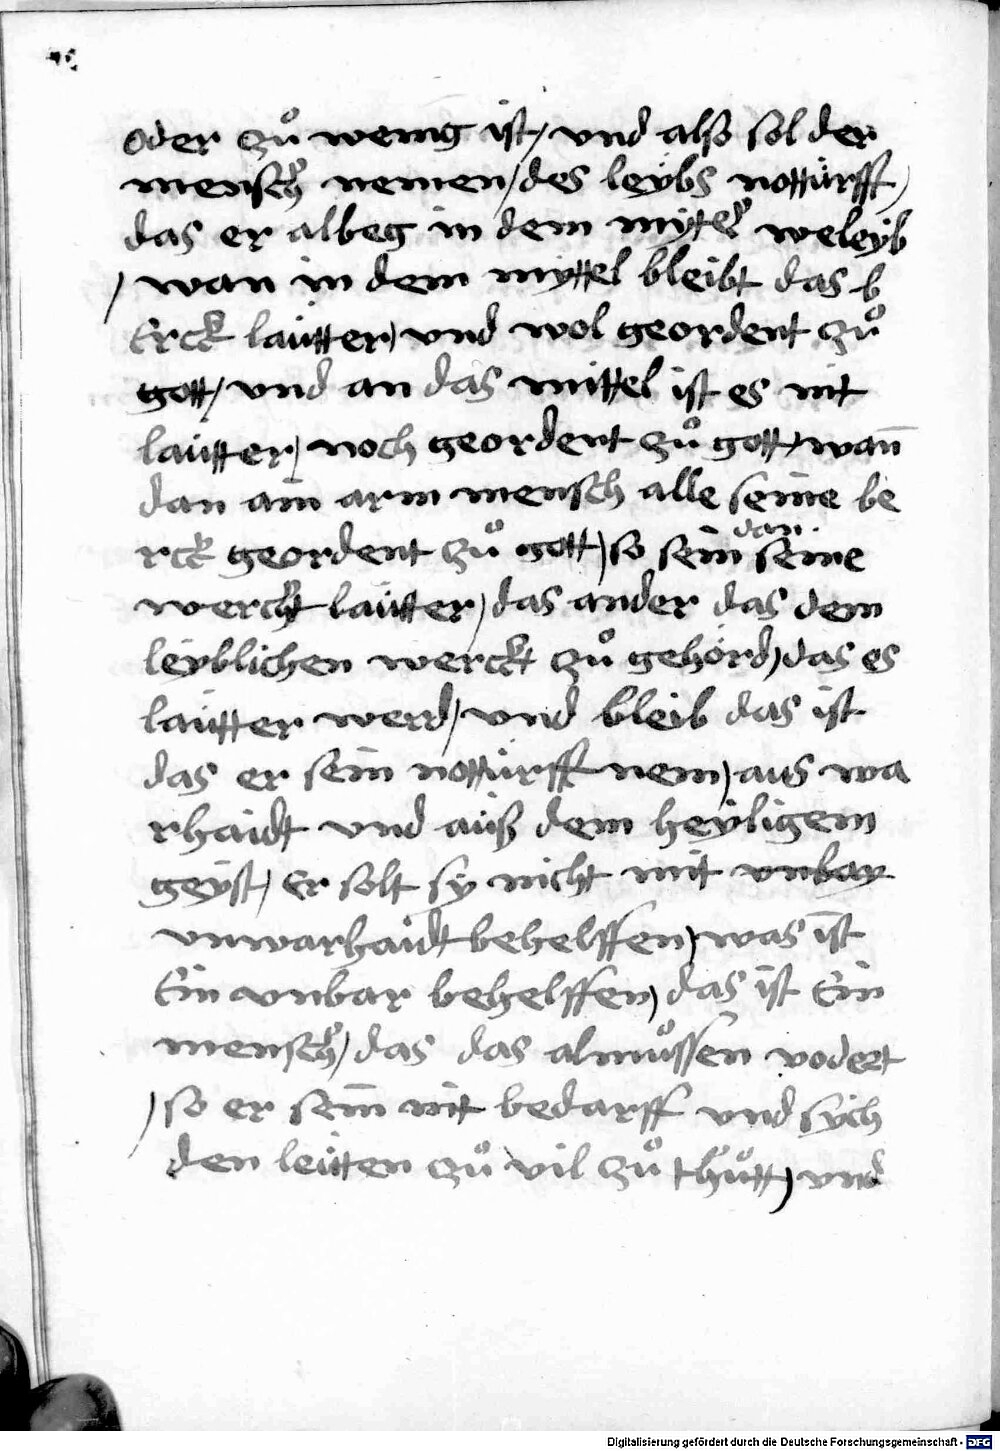 oder zuͦ wenig ist / vnd also sol der
mensch nemen / des leybs nottürfft /
das er albeg in dem mytel weleyb
/ wan in dem myttel bleibt das b
Erck laütter / vnd wol geordent zuͦ
gott / vnd an das mittel ist es nit
laütter / noch geordent zuͦ gott / wan̄
dan ain arm mensch alle seine be
rck geordent zuͦ gott / so sein dan seine
werckt laütter / das ander das dem
leyblichen werckt zuͦ gehörd / das es
laütter werd / vnd bleib das ist
das er sein nottürfft nem / aus wa
rhaidt vnd auß dem heyligem
geyst / Er solt sy nicht mit vnbar
vnwarhaidt behelffen / was ist
Ein vnbar behelffen / das ist Ein
mensch / das das almuͦssen vodert
/ so er sein̄ nit bedarff vnd sych
den leütten zuͦ vil zuͦ thuͦtt / vnd
Digitalisierung gefördert durch die Deutsche Forschungsgemeinschaft - DFG